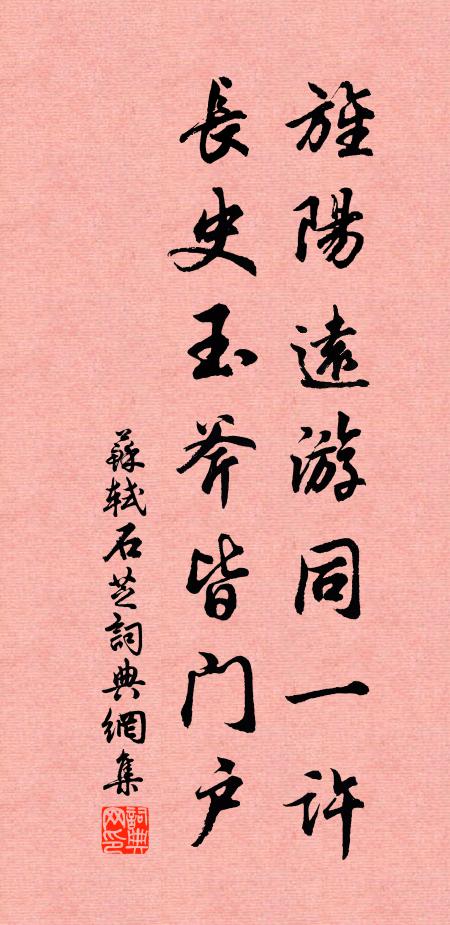 旌陽遠游同一許
長史玉斧皆门户
蘇軾石芝詞典網集
詞典网印